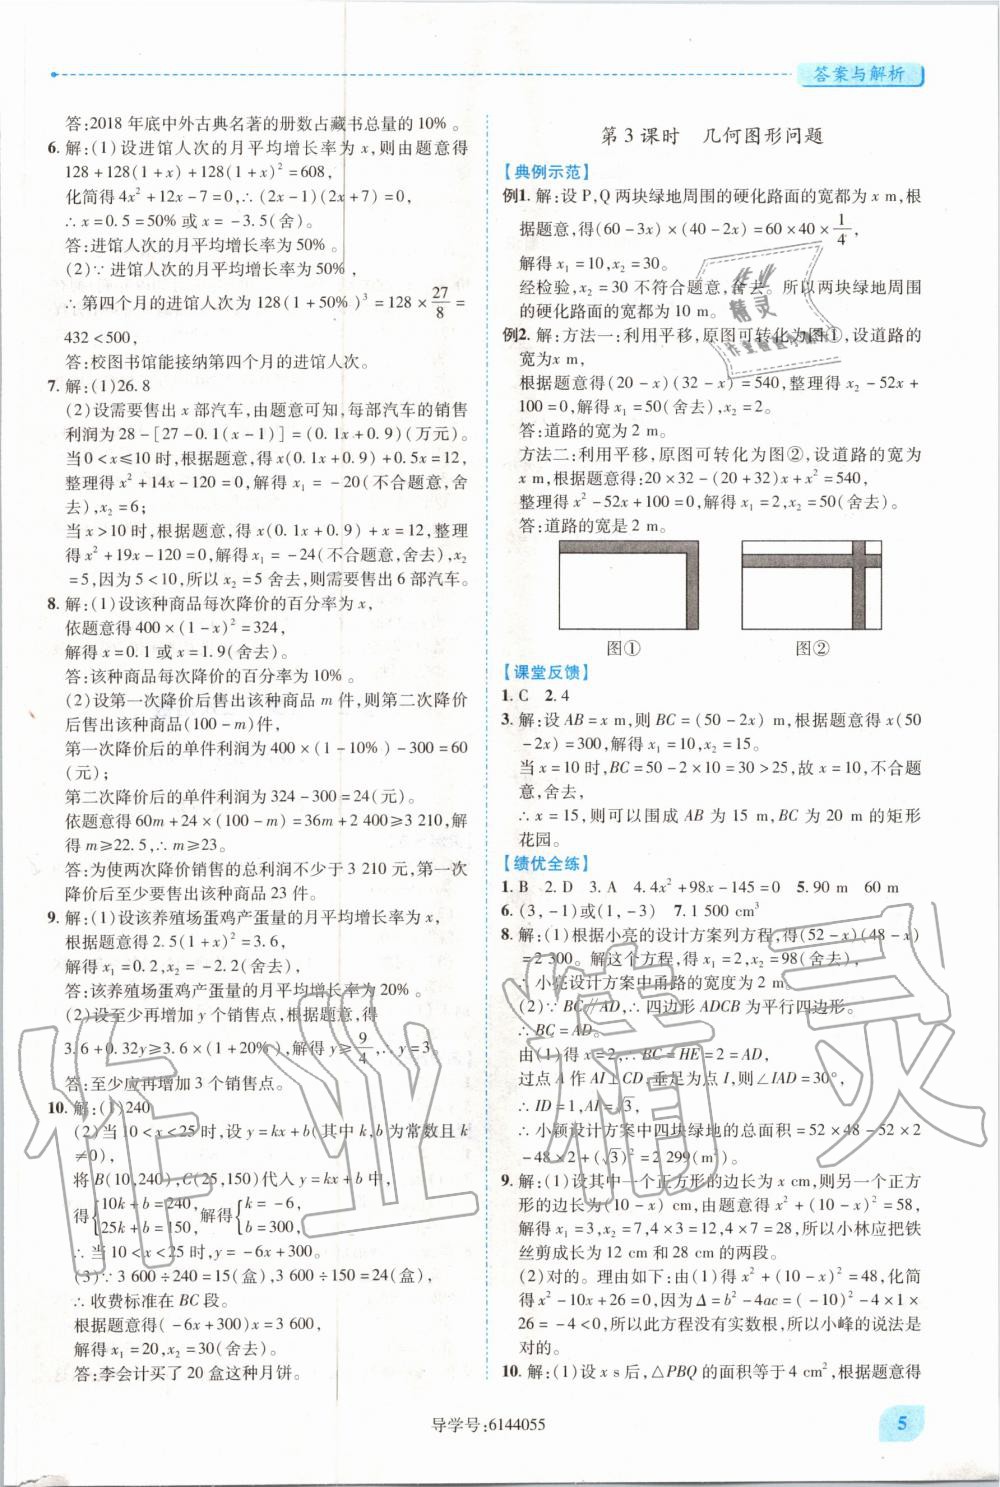 答案与解析
答:2018 年底中外古典名著的册数占藏书总量的 10% 。
6. 解:(1)设进馆人次的月平均增长率为 x,则由题意得
128+128(1+x)+128(1+x)²=608,
化简得 4x²+12x-7=0,∴(2x-1)(2x+7)=0,
∴x=0.5=50% 或 x=-3.5(舍)。
答:进馆人次的月平均增长率为 50% 。
(2)∵进馆人次的月平均增长率为 50% ,
∴第四个月的进馆人次为 128(1+50%)³=128×27/8=
432<500,
答:校图书馆能接纳第四个月的进馆人次。
7. 解:(1)26.8
(2)设需要售出 x 部汽车,由题意可知,每部汽车的销售
利润为 28-[27-0.1(x-1)]=(0.1x+0.9)(万元)。
当 0<x≤10 时,根据题意,得 x(0.1x+0.9)+0.5x=12,
整理得 x²+14x-120=0,解得 x₁=-20(不合题意,舍
去),x₂=6;
当 x>10 时,根据题意,得 x(0.1x+0.9)+x=12,整理
得 x²+19x-120=0,解得 x₁=-24(不合题意,舍去),x₂
=5,因为 5<10,所以 x₂=5 舍去,则需要售出 6 部汽车。
8. 解:(1)设该种商品每次降价的百分率为 x,
依题意得 400×(1-x)²=324,
解得 x=0.1 或 x=1.9(舍去)。
答:该种商品每次降价的百分率为 10% 。
(2)设第一次降价后售出该种商品 m 件,则第二次降价
后售出该种商品(100-m)件,
第一次降价后的单件利润为 400×(1-10%)-300=60
(元);
第二次降价后的单件利润为 324-300=24(元)。
依题意得 60m+24×(100-m)=36m+2 400≥3 210,解
得 m≥22.5,∴m≥23。
答:为使两次降价销售的总利润不少于 3 210 元,第一次
降价后至少要售出该种商品 23 件。
9. 解:(1)设该养殖场蛋鸡产蛋量的月平均增长率为 x,
根据题意得 2.5(1+x)²=3.6,
解得 x₁=0.2,x₂=-2.2(舍去),
答:该养殖场蛋鸡产蛋量的月平均增长率为 20% 。
(2)设至少再增加 y 个销售点,根据题意,得
3.6+0.32y≥3.6×(1+20%),解得 y≥9/4,∴y=3。
答:至少应再增加 3 个销售点。
10. 解:(1)240
(2)当 10<x<25 时,设 y=kx+b(其中 k,b 为常数且 k
≠0),
将 B(10,240),C(25,150)代入 y=kx+b 中,
得{10k+b=240, 25k+b=150,解得{k=-6, b=300,
∴当 10<x<25 时,y=-6x+300。
(3)∵3 600÷240=15(盒),3 600÷150=24(盒),
∴收费标准在 BC 段。
根据题意得(-6x+300)x=3 600,
解得 x₁=20,x₂=30(舍去)。
答:李会计买了 20 盒这种月饼。
第 3 课时 几何图形问题
【典例示范】
例1. 解:设 P,Q 两块绿地周围的硬化路面的宽都为 x m,根
据题意,得(60-3x)×(40-2x)=60×40×1/4,
解得 x₁=10,x₂=30。
经检验,x₂=30 不符合题意,舍去。所以两块绿地周围
的硬化路面的宽都为 10 m。
例2. 解:方法一:利用平移,原图可转化为图①,设道路的
宽为 x m,
根据题意得(20-x)(32-x)=540,整理得 x²-52x+
100=0,解得 x₁=50(舍去),x₂=2。
答:道路的宽为 2 m。
方法二:利用平移,原图可转化为图②,设道路的宽为
x m,根据题意得:20×32-(20+32)x+x²=540,
整理得 x²-52x+100=0,解得 x₁=2,x₂=50(舍去)。
答:道路的宽是 2 m。
图① 图②
【课堂反馈】
1. C 2. 4
3. 解:设 AB=x m,则 BC=(50-2x) m,根据题意得 x(50
-2x)=300,解得 x₁=10,x₂=15。
当 x=10 时,BC=50-2×10=30>25,故 x=10,不合题
意,舍去,
∴x=15,则可以围成 AB 为 15 m,BC 为 20 m 的矩形
花园。
【绩优全练】
1. B 2. D 3. A 4. 4x²+98x-145=0 5. 90 m 60 m
6. (3,-1)或(1,-3) 7. 1 500 cm³
8. 解:(1)根据小亮的设计方案列方程,得(52-x)(48-x)
=2 300。解这个方程,得 x₁=2,x₂=98(舍去)。
∴小亮设计方案中甬路的宽度为 2 m。
(2)∵BC∥AD,∴四边形 ADCB 为平行四边形。
∴BC=AD。
由(1)得 x=2,∴BC=HE=2=AD,
过点 A 作 AI⊥CD,垂足为点 I,则∠IAD=30°,
∴ID=1,AI=√3,
∴小颖设计方案中四块绿地的总面积=52×48-52×2
-48×2+(√3)²=2 299(m²)。
9. 解:(1)设其中一个正方形的边长为 x cm,则另一个正方
形的边长为(10-x) cm,由题意得 x²+(10-x)²=58,
解得 x₁=3,x₂=7,4×3=12,4×7=28,所以小林应把铁
丝剪成长为 12 cm 和 28 cm 的两段。
(2)对的。理由如下:由(1)得 x²+(10-x)²=48,化简
得 x²-10x+26=0,因为 Δ=b²-4ac=(-10)²-4×1×
26=-4<0,所以此方程没有实数根,所以小峰的说法是
对的。
10. 解:(1)设 x s 后,△PBQ 的面积等于 4 cm²,根据题意得
导学号:6144055
5
作业精灵
作业
精灵